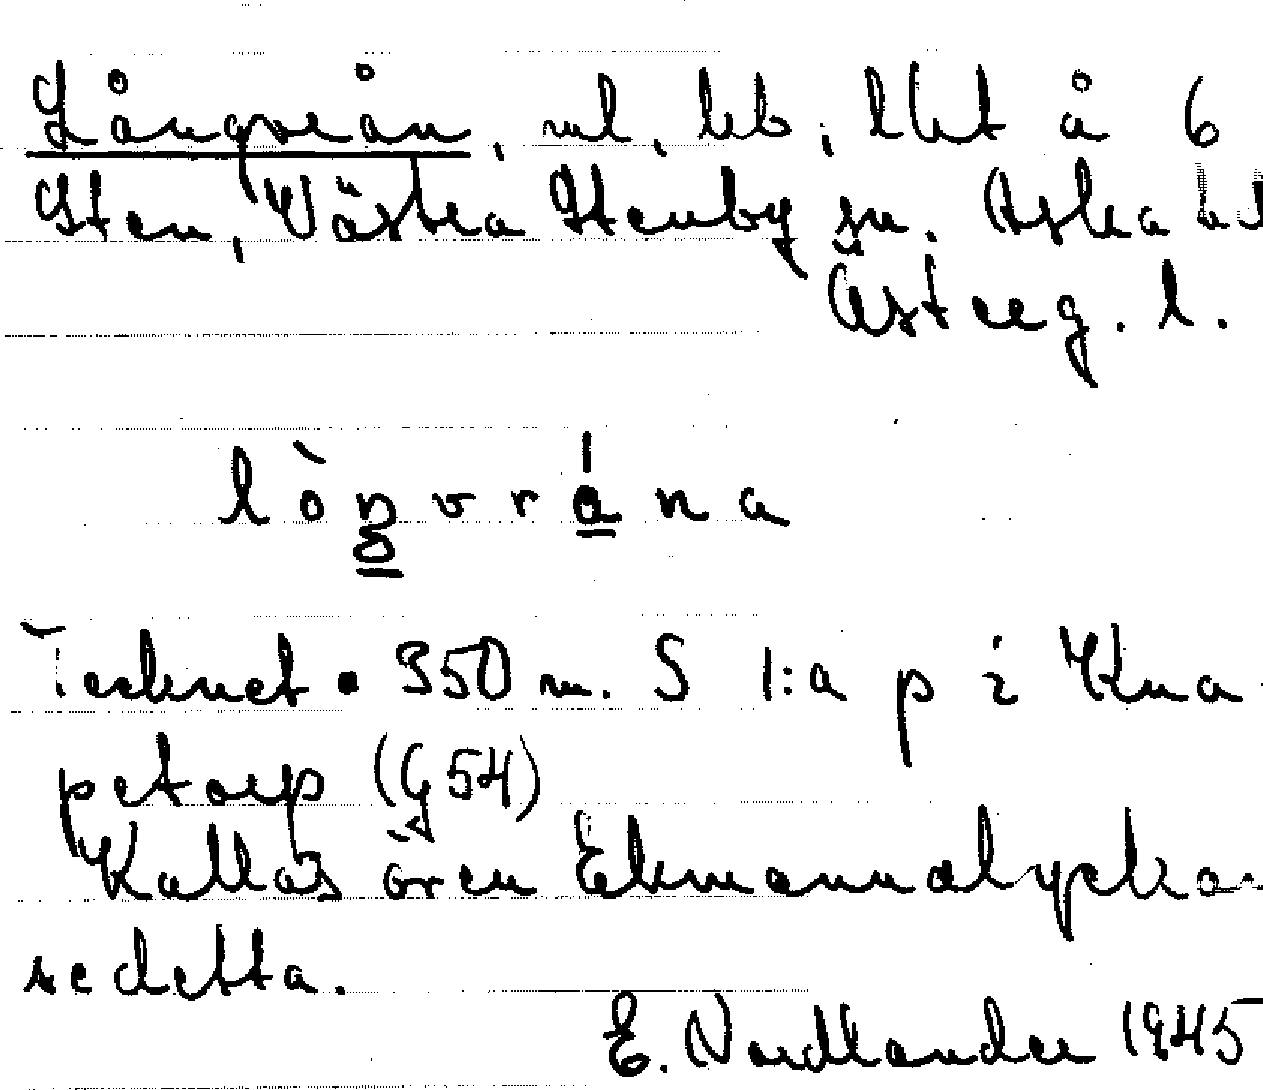 Långvrån, ml, bb, lht å 6
Sten, Västra Stenby sn. Aska hd
Österg. l.
lòŋvrána
Tecknet • 350 m. S 1:a p i Kna
petorp (G 54)
Kallas även Ekmannalyckan
se detta.
E. Nordlander 1945